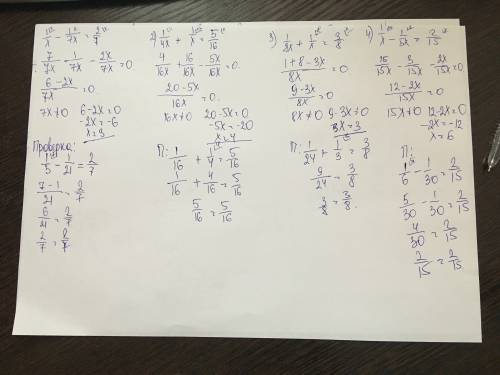 1/x - 1/7x = 2/7
7/7x - 1/7x - 2x/7x = 0
6-2x/7x = 0.
7x≠0 6-2x=0
-2x=-6
x=3
Проверка:
1/3 - 1/21 = 2/7
7-1/21 = 2/7
6/21 = 2/7
2/7 = 2/7
2) 1/4x + 1/x = 5/16
4/16x + 16/16x - 5x/16x = 0.
20-5x/16x = 0.
16x≠0 20-5x=0
-5x=-20
x=4
П:
1/16 + 1/4 = 5/16
1/16 + 4/16 = 5/16
5/16 = 5/16
3) 1/8x + 1/x = 3/8
1+8-3x/8x = 0
9-3x/8x = 0
8x≠0 9-3x=0
x=3
П:
1/24 + 1/3 = 3/8
9/24 = 3/8
3/8 = 3/8.
4) 1/x - 1/5x = 2/15
15/15x - 3/15x - 2x/15x = 0
12-2x/15x = 0
15x≠0 12-2x=0
-2x=-12
x=6
П:
1/6 - 1/30 = 2/15
5/30 - 1/30 = 2/15
4/30 = 2/15
2/15 = 2/15